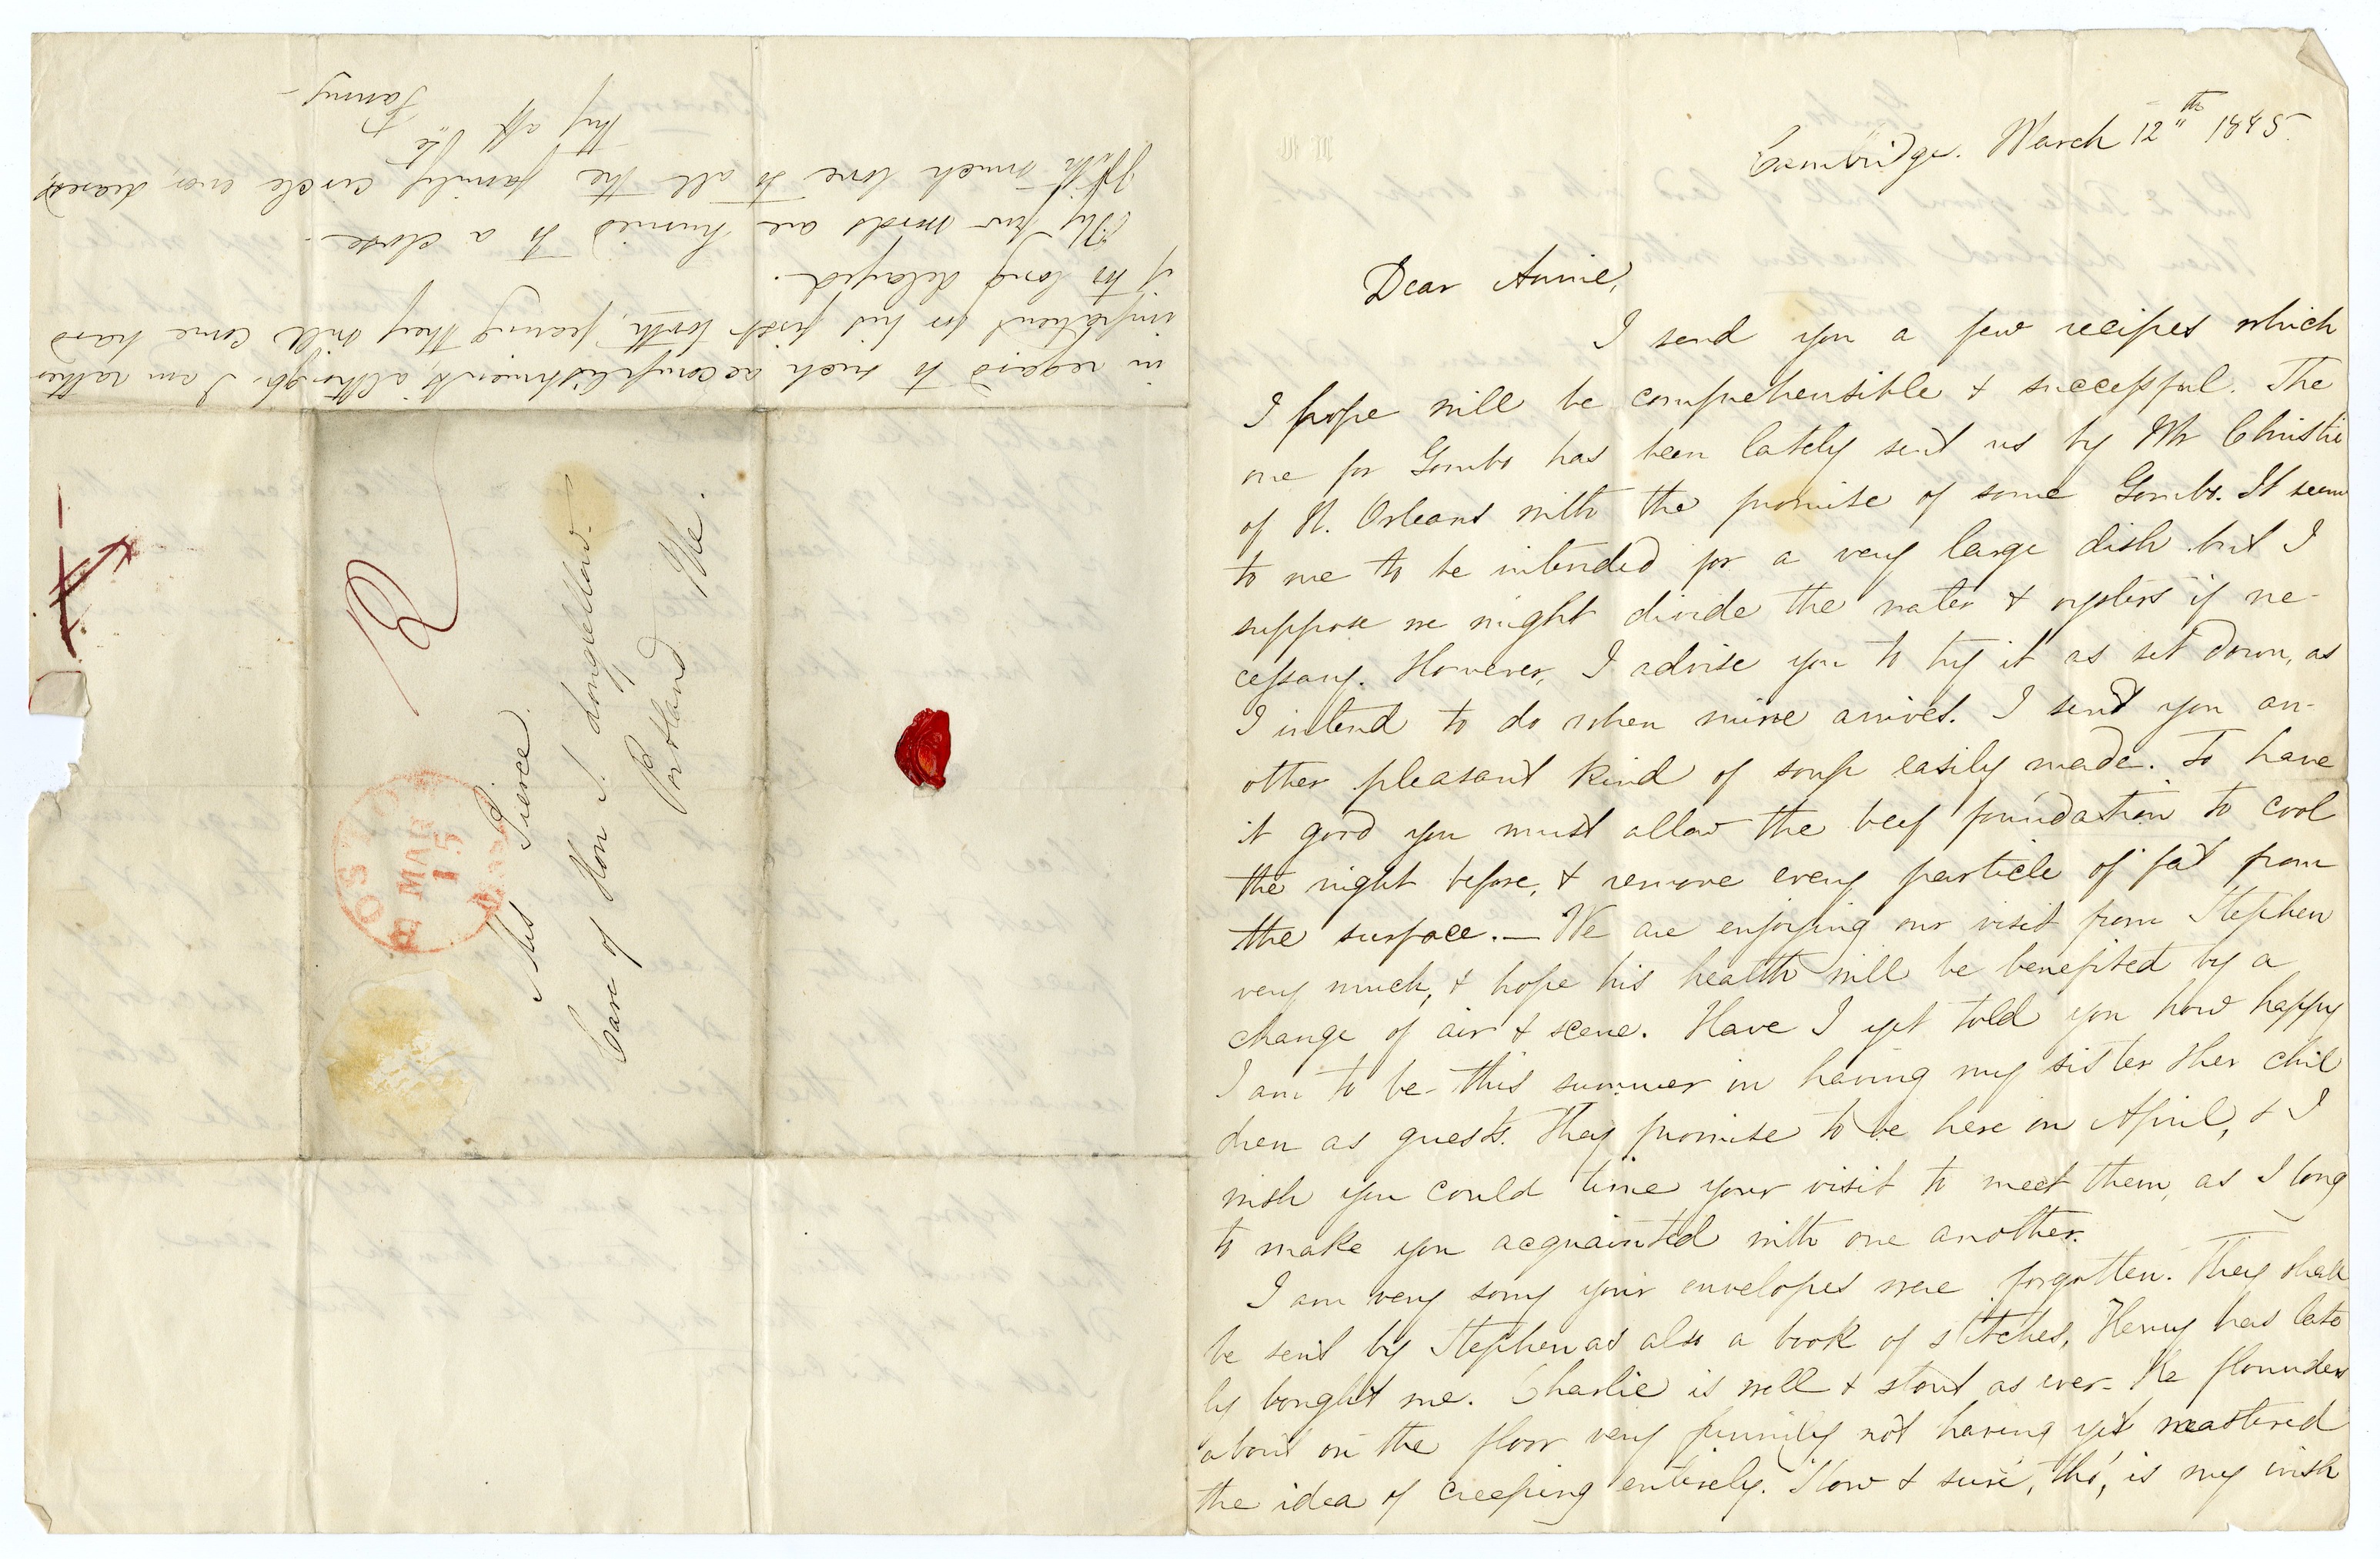 Cambridge. March 12th 1845.
Dear Annie,
I send you a few recipes which
I hope will be comprehensible & successful. The
one for Gombo has been lately sent us by Mr Christie
of N. Orleans with the promise of some Gombo. It seems
to me to be intended for a very large dish but I
suppose we might divide the water & oysters if ne-
cessary. However, I advise you to try it as set down, as
I intend to do when mine arrives. I send you an-
other pleasant kind of soup easily made. To have
it good you must allow the beef foundation to cool
the night before, & remove every particle of fat from
the surface. — We are enjoying our visit from Stephen
very much, & hope his health will be benefited by a
change of air & scene. Have I yet told you how happy
I am to be this summer in having my sister & her chil
dren as guests. They promise to be here in April, & I
wish you could time your visit to meet them, as I long
to make you acquainted with one another.
I am very sorry your envelopes were forgotten. They shall
be sent by Stephen as also a book of stitches, Henry has late
ly bought me. Charlie is well & stout as ever. He flounders
about on the floor very funnily not having yet mastered
the idea of creeping entirely. Slow & sure, tho', is my wish
in regard to such accomplishments, although I am rather
impatient for his first tooth, fearing they will come hard
if too long delayed.
My few words are hurried to a close.
With much love to all the family circle ever, dearest,
Thy aff
Fanny—
Mrs Pierce.
Care of Hon S. Longfellow.
Portland Me.
BOSTON
MAR
15